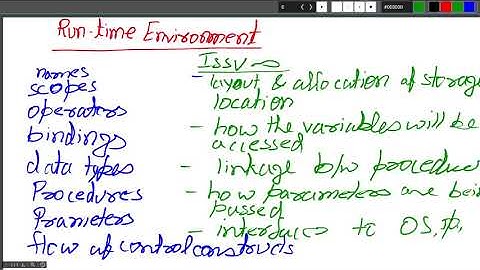 Run-time Environment
names
scopes
operators
bindings
data types
Procedures
Prameters
flow of control constructs
Issu
- layout & allocation of storage
location
- how the variables will be
accessed
- linkage b/w procedure
- how parameters are bein
passed
- interfaces to OS,
#000000